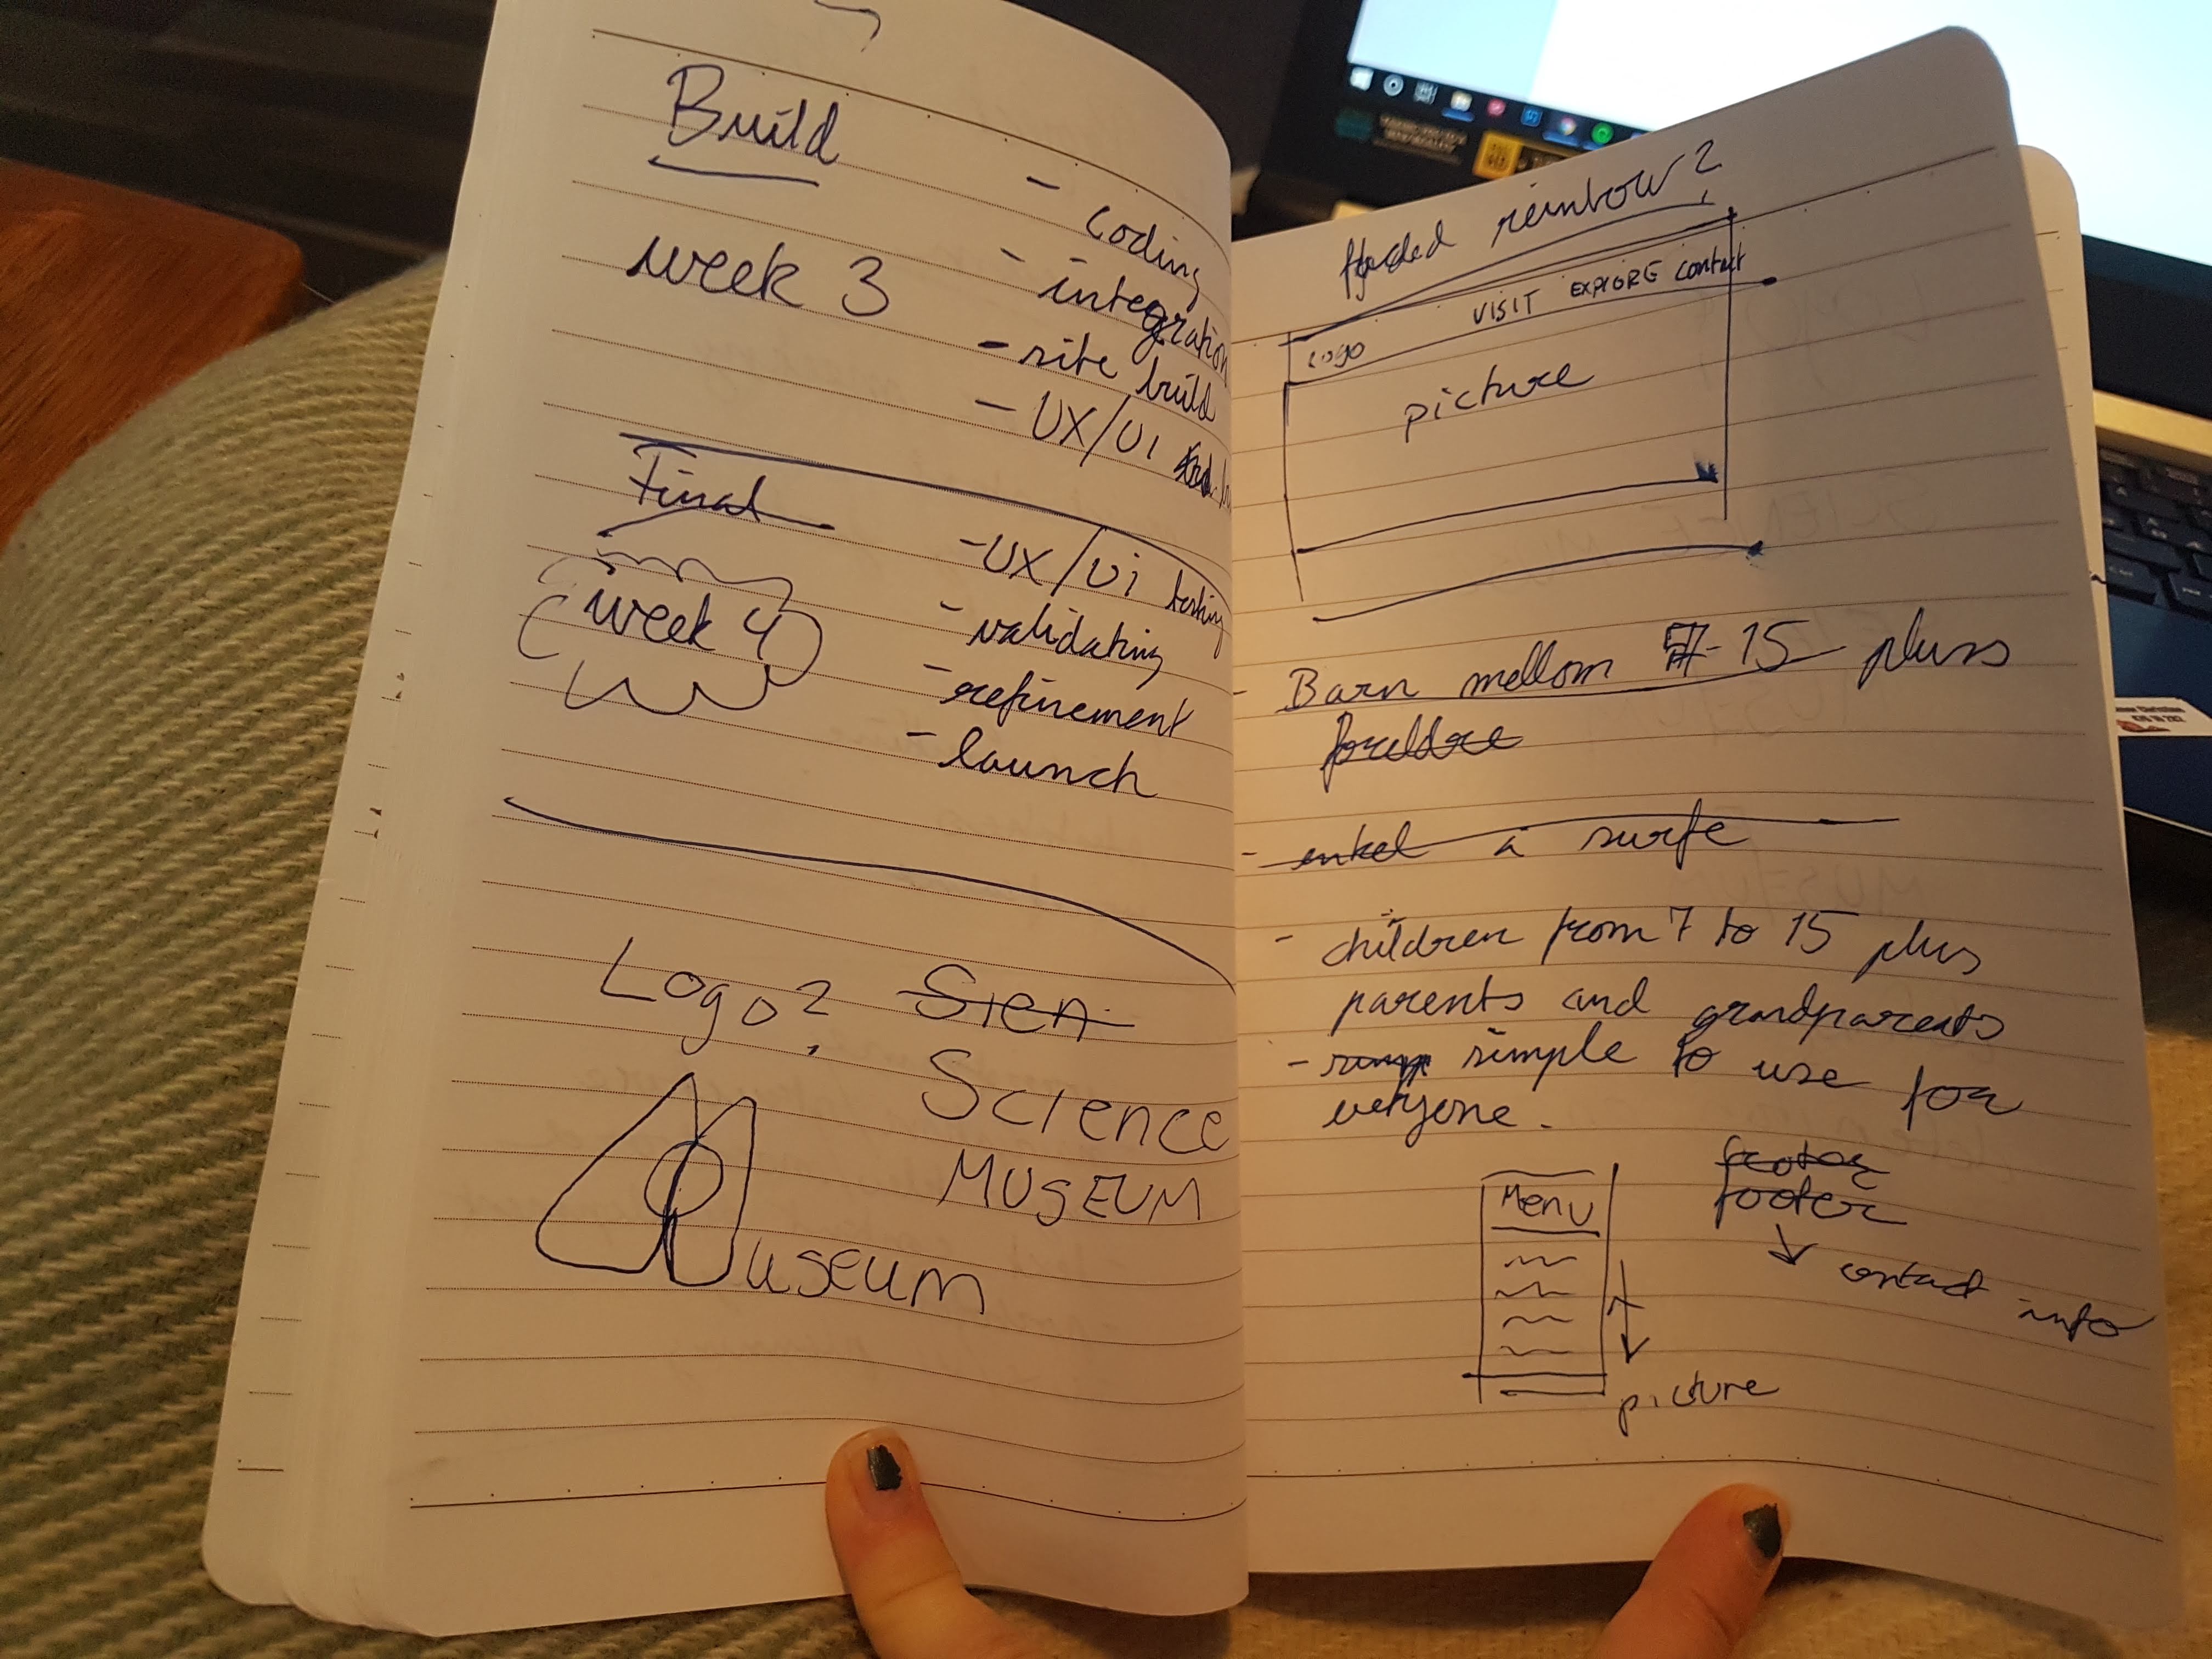 Build
week 3
- coding
- integration
- site build
- UX/UI
Final
week 4
- UX/Ui testing
- validating
- refinement
- launch
Logo? Sien
Science
MUSEUM
Museum
faded reinbow?
Logo VISIT EXPLORE contact
picture
- Barn mellom 7-15 pluss
foreldre
- enkel å surfe
- children from 7 to 15 plus
parents and grandparents
- simple to use for
everyone.
Menu
footer
contact info
picture